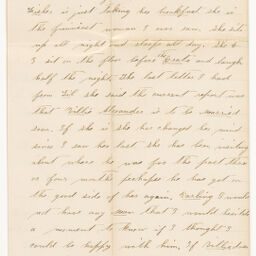 is just taking her breakfast she is
the funniest woman I ever saw. She sits
up all night and sleeps all day. She & 
I sit on the floor before the Grate and laugh
half the night. The last letter I had
from Lil she said the current report was
that Billie Alexander is to be married
soon. If she is she has changed her mind
since I saw her last she has been writing
about where he was for the past three
or four months perhapse he has got on
the good side of her again. Darling I would
not have any man that I would hesitate
a moment to know if I thought I
could be happy with him. If